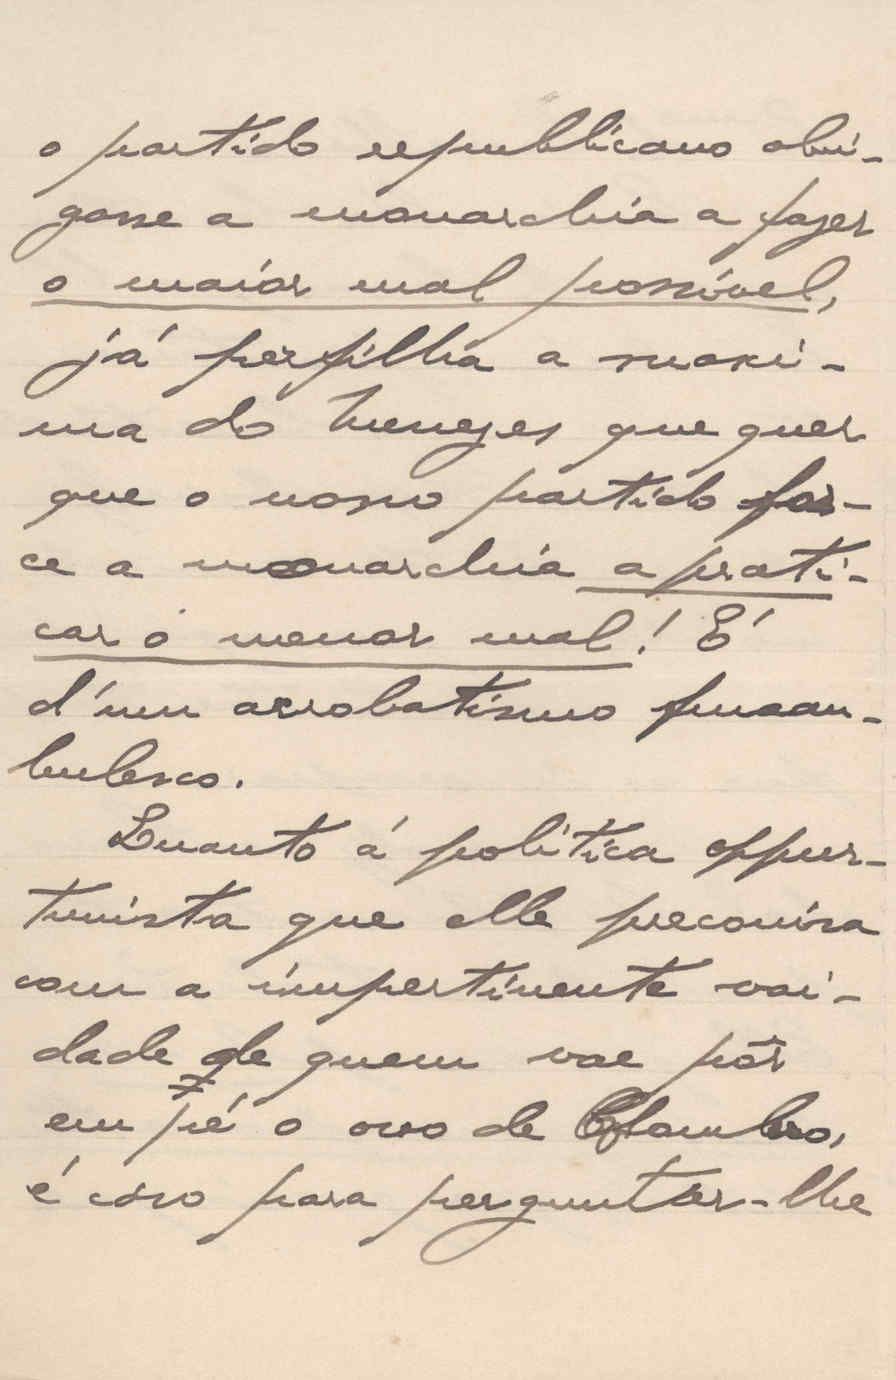 o partido republicano obri-
gasse a monarchia a fazer
o maior mal possivel,
já perfilha a maxi-
ma do Menezes que quer
que o nosso partido for-
ce a monarchia a prati-
car o menor mal! É
d'um acrobatismo funam-
bulesco.
Quanto á politica oppor-
tunista que elle preconisa
com a impertinente vai-
dade de quem vae pôr
em pé o ovo de
é caso para perguntar-lhe